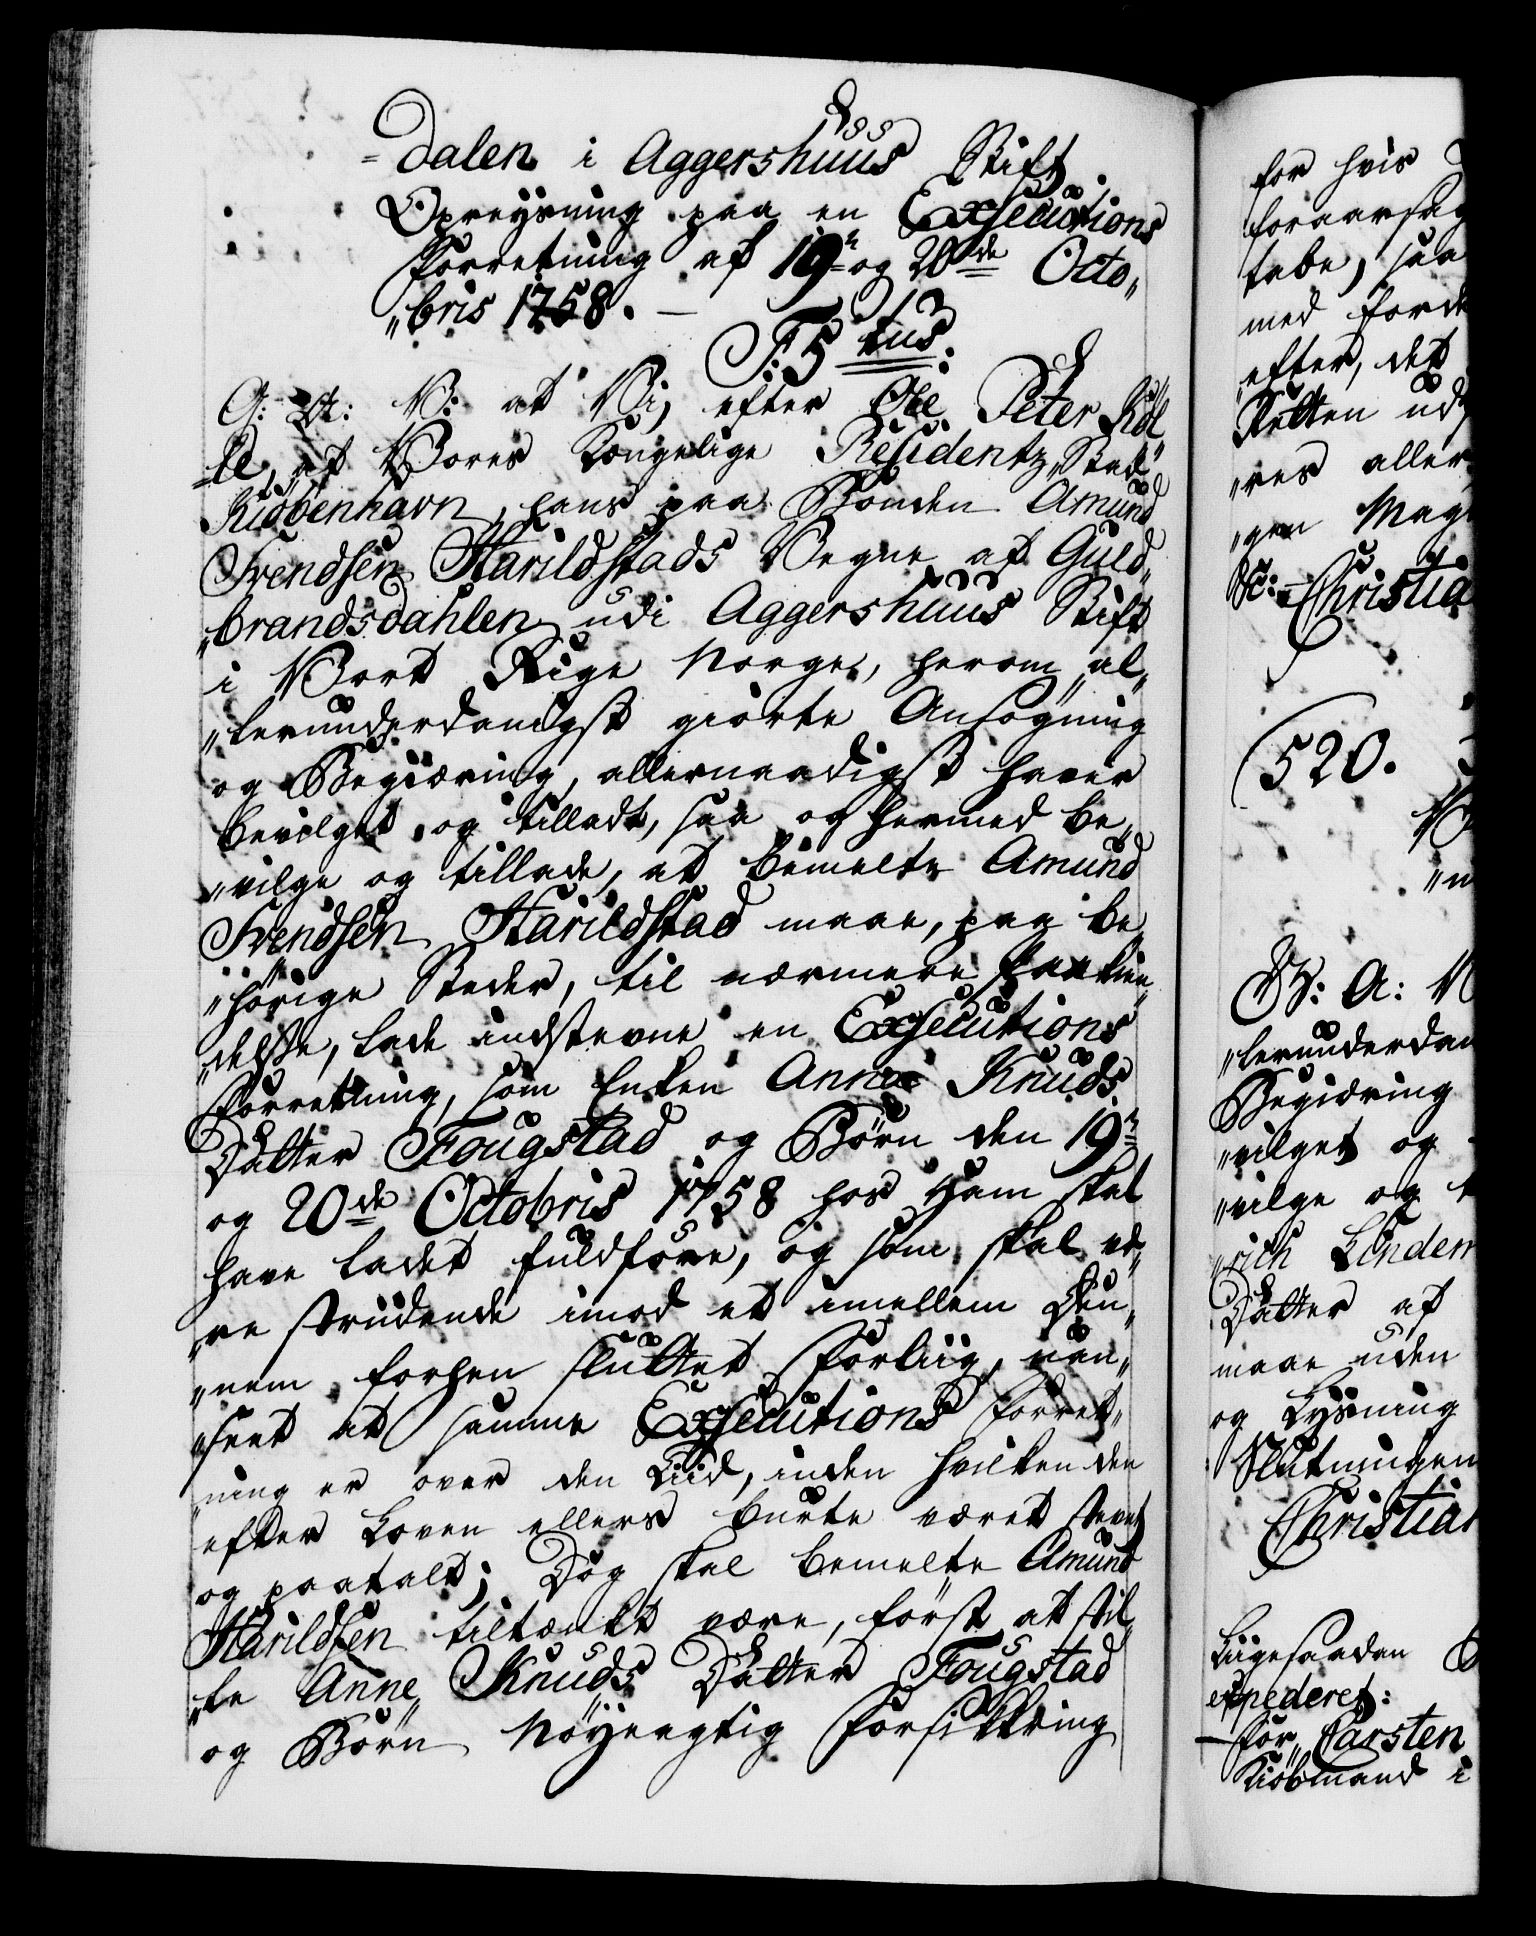 =dalen i Aggershuus Stift
Opreysning paa en Exsecutions
Forretning af 19n og 20de Octo„
„bris 1758. —
F: 5tus:
G: A: V: at Vi, efter Ole Peter
le, af Vores Kongelige Residentz Stad
Kiöbenhavn, hans paa Bonden Amund
Svendsen Harildstads Vegne af Guld„
„brandsdahlen udi Aggershuus Stift
i Vort Rige Norge, herom al„
„lerunderdanigst giorte Ansøgning
og Begiæring, allernaadigst haver
bevilget og tilladt, saa og hermed be„
„vilge og tillade, at bemelte Amund
Svendsen Harildstad maae, paa be„
„hörige Steder, til nærmere Paakien„
„delse, lade indstevne en Exsecutions
Forretning, som Enken Anne Knuds
Datter Fougstad og Börn den 19n
og 20de Octobris 1758 hos Ham skal
have ladet fuldföre, og som skal væ„
„re stridende imod et imellem Den„
„nem forhen sluttet Forliig, uan„
„seet at samme Exsecutions Forret„
ning er over den Tiid, inden hvilken den
efter Loven ellers burte været stevnt
og paatalt; Dog skal bemelte Amund
Harildsen tiltænkt være, först at stil„
„le Anne Knuds Datter Fougstad
og Börn Nöyeagtig Forsikkring
for hvis
foraarsag
tabe, saa
med forde
efter, det
Retten ud
„res aller
„gen Mag
Christia
520.
B: A: V
„lerunderdan
Begiæring
„vilget og
„vilge og t
„rich Lindem
Datter af
maae uden
og Lysning
Slutningen
Christian
Liigesaadan
expederet:
— for Carsten
Kiöbmand i